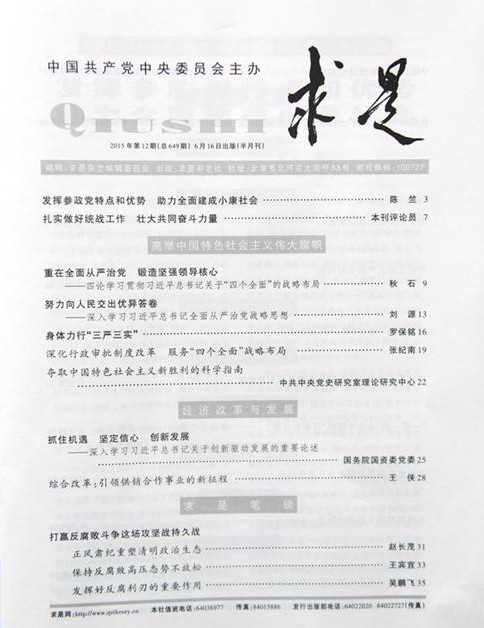 中国共产党中央委员会主办
求是
QIUSHI
2015年第12期(总649期) 6月16日出版(半月刊)
编辑:求是杂志编辑委员会 出版:求是杂志社 社址:北京市北河沿大街甲83号 邮政编码:100727
发挥参政党特点和优势 助力全面建成小康社会 陈竺 3
扎实做好统战工作 壮大共同奋斗力量 本刊评论员 7
高举中国特色社会主义伟大旗帜
重在全面从严治党 锻造坚强领导核心
——四论学习贯彻习近平总书记关于“四个全面”的战略布局 秋石 9
努力向人民交出优异答卷
——深入学习习近平总书记全面从严治党战略思想 刘源 13
身体力行“三严三实” 罗保铭 16
深化行政审批制度改革 服务“四个全面”战略布局 张纪南 19
夺取中国特色社会主义新胜利的科学指南
中共中央党史研究室理论研究中心 22
经济改革与发展
抓住机遇 坚定信心 创新发展
——深入学习习近平总书记关于创新驱动发展的重要论述
国务院国资委党委 25
综合改革:引领供销合作事业的新征程 王侠 28
求是笔谈
打赢反腐败斗争这场攻坚战持久战
正风肃纪重塑清明政治生态 赵长茂 31
保持反腐败高压态势不放松 王宾宜 33
发挥好反腐利刃的重要作用 吴鹏飞 35
求是网:http://www.qstheory.cn 本社值班电话:64036977 传真:84015886 发行出版部电话:64022020 64022727(传真)